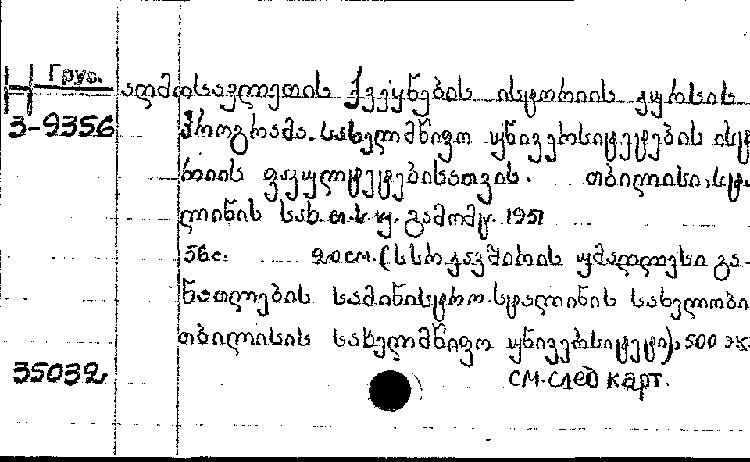 Груз.
აღმოსავლეთის ქვეყნების ისტორიის კურსის
3-9356 პროგრამა. სახელმწიფო უნივერსიტეტების ისტ
რიის ფაკულტეტებისათვის. თბილისი, სტა
ლინის სახ. თ. ს. უ. გამომც. 1951
56с. 20см. (სსრ კავშირის უმაღლესი გა-
ნათლების სამინისტრო. სტალინის სახელობი
თბილისის სახელმწიფო უნივერსიტეტი), 500 экз
35032 см. след карт.